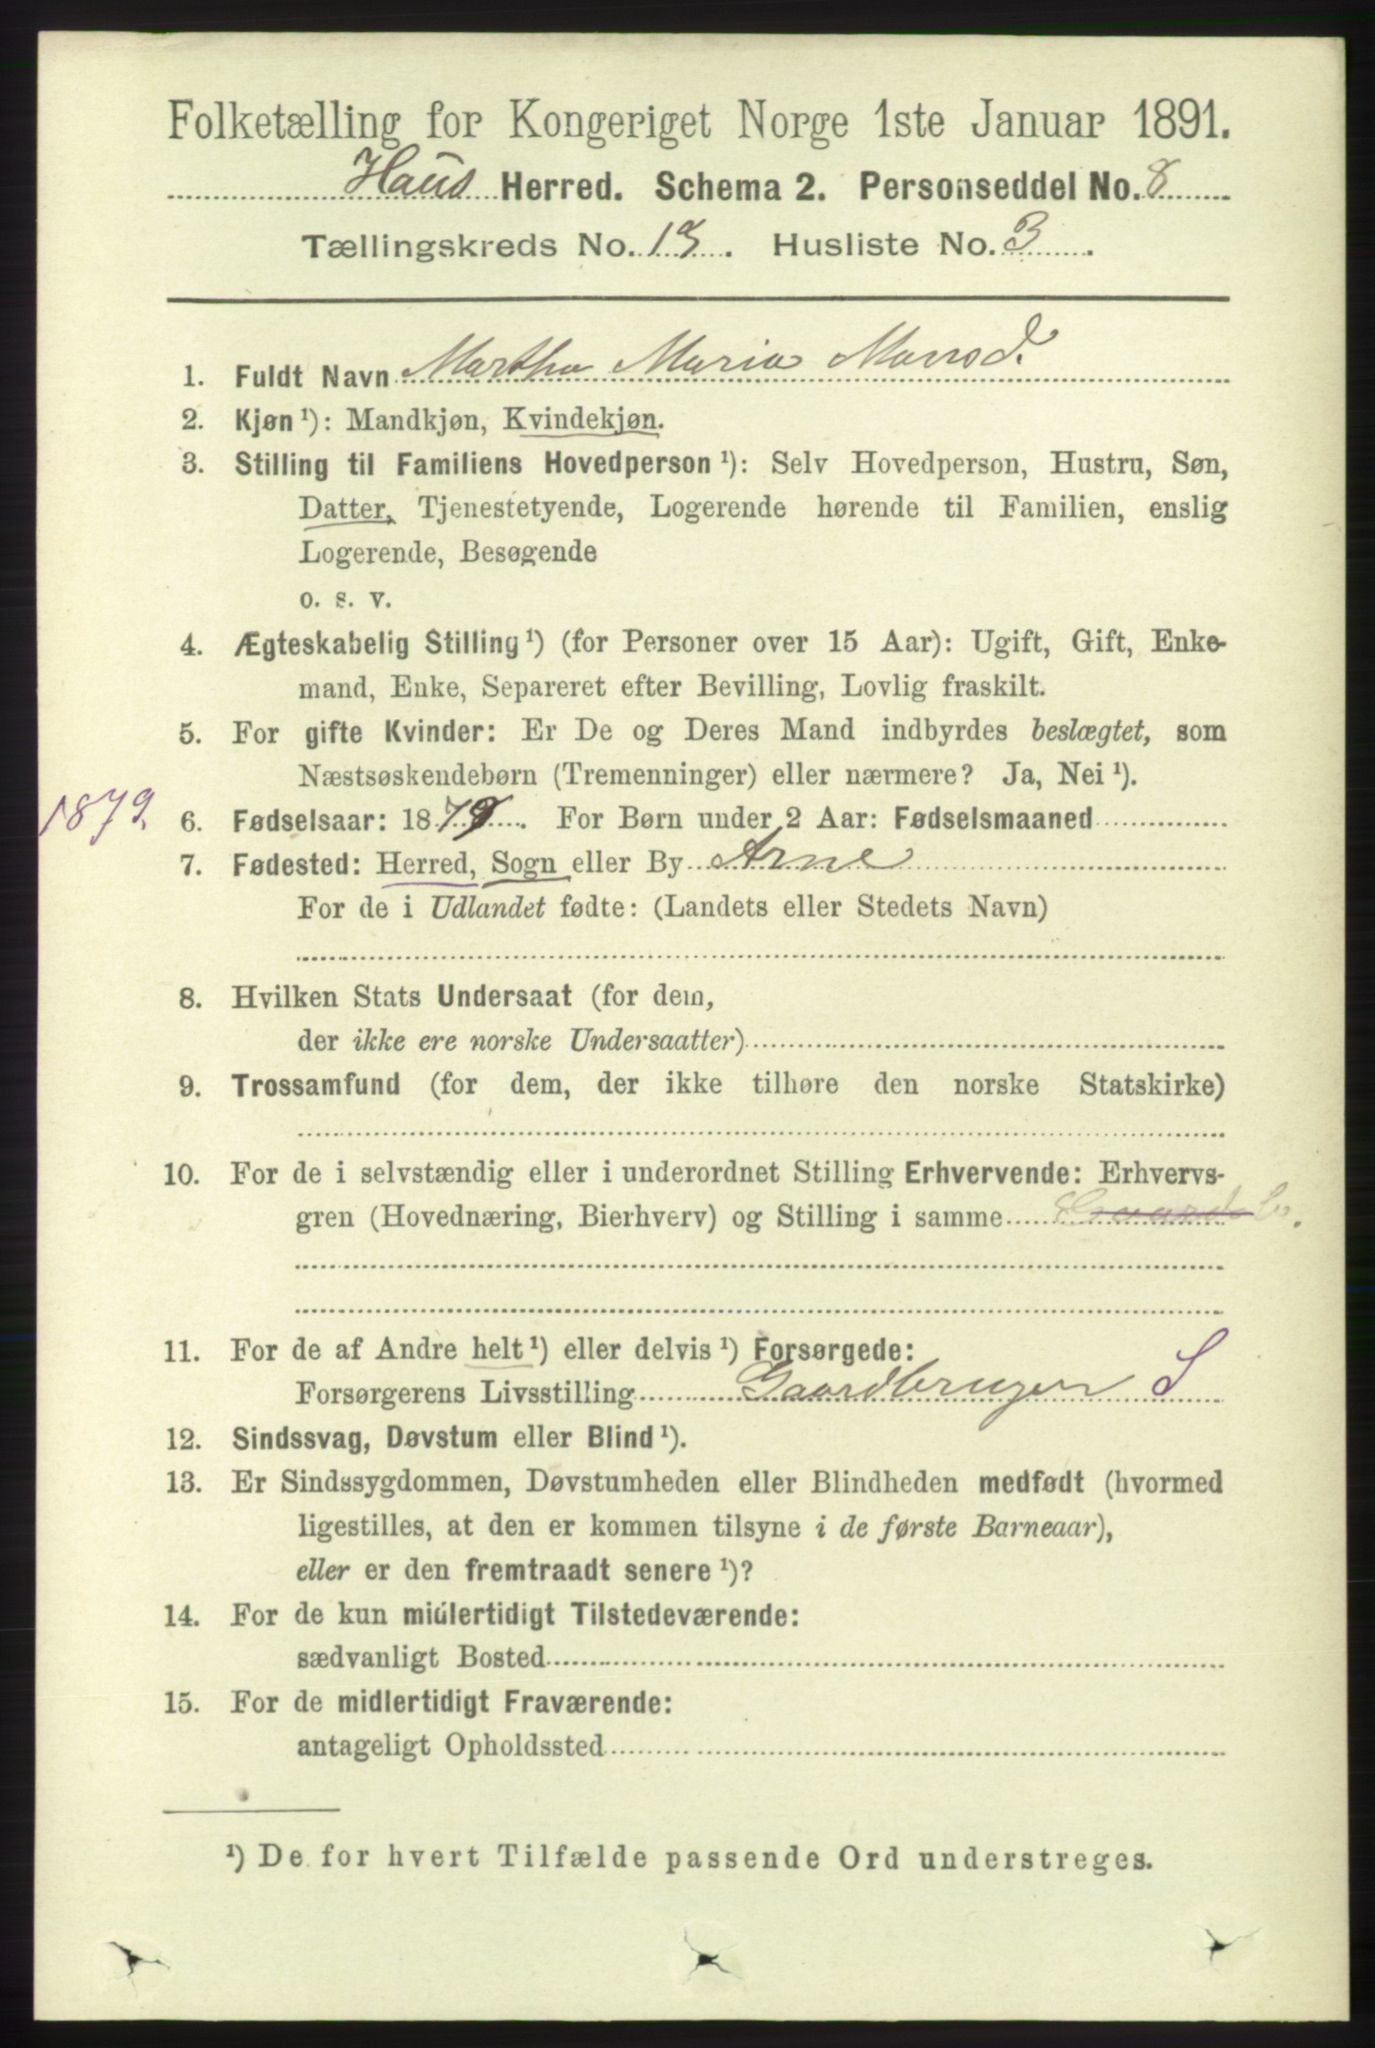 Folketælling for Kongeriget Norge 1ste Januar 1891.
Haus Herred. Schema 2. Personseddel No. 8
Tællingskreds No. 13. Husliste No. 3.
1. Fuldt Navn Martha Maria Monsd.
2. Kjøn ¹): Mandkjøn, Kvindekjøn.
3. Stilling til Familiens Hovedperson ¹): Selv Hovedperson, Hustru, Søn,
Datter, Tjenestetyende, Logerende hørende til Familien, enslig
Logerende, Besøgende
o. s. v.
4. Ægteskabelig Stilling ¹) (for Personer over 15 Aar): Ugift, Gift, Enke-
mand, Enke, Separeret efter Bevilling, Lovlig fraskilt.
5. For gifte Kvinder: Er De og Deres Mand indbyrdes beslægtet, som
Næstsøskendebørn (Tremenninger) eller nærmere? Ja, Nei ¹).
1879. 6. Fødselsaar: 1879. For Børn under 2 Aar: Fødselsmaaned
7. Fødested: Herred, Sogn eller By Arne
For de i Udlandet fødte: (Landets eller Stedets Navn)
8. Hvilken Stats Undersaat (for dem,
der ikke ere norske Undersaatter)
9. Trossamfund (for dem, der ikke tilhøre den norske Statskirke)
10. For de i selvstændig eller i underordnet Stilling Erhvervende: Erhvervs-
gren (Hovednæring, Bierhverv) og Stilling i samme
11. For de af Andre helt ¹) eller delvis ¹) Forsørgede:
Forsørgerens Livsstilling Gaardbruger S
12. Sindssvag, Døvstum eller Blind ¹).
13. Er Sindssygdommen, Døvstumheden eller Blindheden medfødt (hvormed
ligestilles, at den er kommen tilsyne i de første Barneaar),
eller er den fremtraadt senere ¹)?
14. For de kun midlertidigt Tilstedeværende:
sædvanligt Bosted
15. For de midlertidigt Fraværende:
antageligt Opholdssted
¹) De for hvert Tilfælde passende Ord understreges.